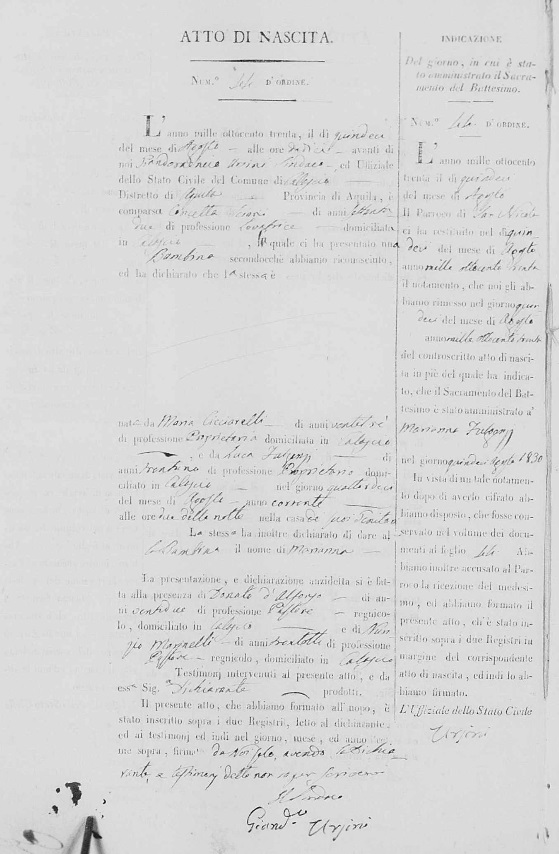 ATTO DI NASCITA.
NUM.° D'ORDINE.
L'anno mille ottocento trenta, il dì quindeci
del mese di Agosto alle ore avanti di
noi Sindaco, ed Uffiziale
dello Stato Civile del Comune di
Distretto di Aquila Provincia di Aquila, è
comparsa Concetta di anni
di professione domiciliata
in , quale ci ha presentato una
Bambina secondocchè abbiamo riconosciuto,
ed ha dichiarato che la stessa è
nata da Maria Ciccarelli di anni ventitrè
di professione Proprietaria domiciliata in
, e da Luca di
anni trentuno di professione Proprietario domi-
ciliato in nel giorno quattordeci
del mese di Agosto anno corrente
alle ore della notte nella casa de' suoi Genitori
La stessa ha inoltre dichiarato di dare al
la Bambina il nome di Marianna
La presentazione, e dichiarazione anzidetta si è fat-
ta alla presenza di Donato d'Alfonso di an-
ni ventidue di professione regnico-
lo, domiciliato in e di
Marinelli di anni trentotto di professione
regnicolo, domiciliato in
Testimonj intervenuti al presente atto, e da
essa Sig.ª Dichiarante prodotti.
Il presente atto, che abbiamo formato all'uopo, è
stato inscritto sopra i due Registri, letto al dichiarante,
ed ai testimonj ed indi nel giorno, mese, ed anno co-
me sopra, firmato da Noi solo, avendo la dichia
rante, e testimonj detto non saper scrivere
Il Sindaco
Giand.co Ursini
INDICAZIONE
Del giorno, in cui è sta-
to amministrato il Sacra-
mento del Battesimo.
NUM.° D'ORDINE.
L'anno mille ottocento
trenta il dì quindeci
del mese di Agosto
Il Parroco di San Nicola
ci ha restituito nel dì quin
deci del mese di Agosto
anno mille ottocento trenta
il notamento, che noi gli ab-
biamo rimesso nel giorno quin
deci del mese di Agosto
anno mille ottocento trenta
del controscritto atto di nasci-
ta in piè del quale ha indica-
to, che il Sacramento del Bat-
tesimo è stato amministrato a'
Marianna
nel giorno quindeci Agosto 1830
In vista di un tale notamento
dopo di averlo cifrato ab-
biamo disposto, che fosse con-
servato nel volume dei docu-
menti al foglio Ab-
biamo inoltre accusato al Par-
roco la ricezione del medesi-
mo, ed abbiamo formato il
presente atto, ch'è stato in-
scritto sopra i due Registri in
margine del corrispondente
atto di nascita, ed indi lo ab-
biamo firmato.
L'Uffiziale dello Stato Civile
Ursini